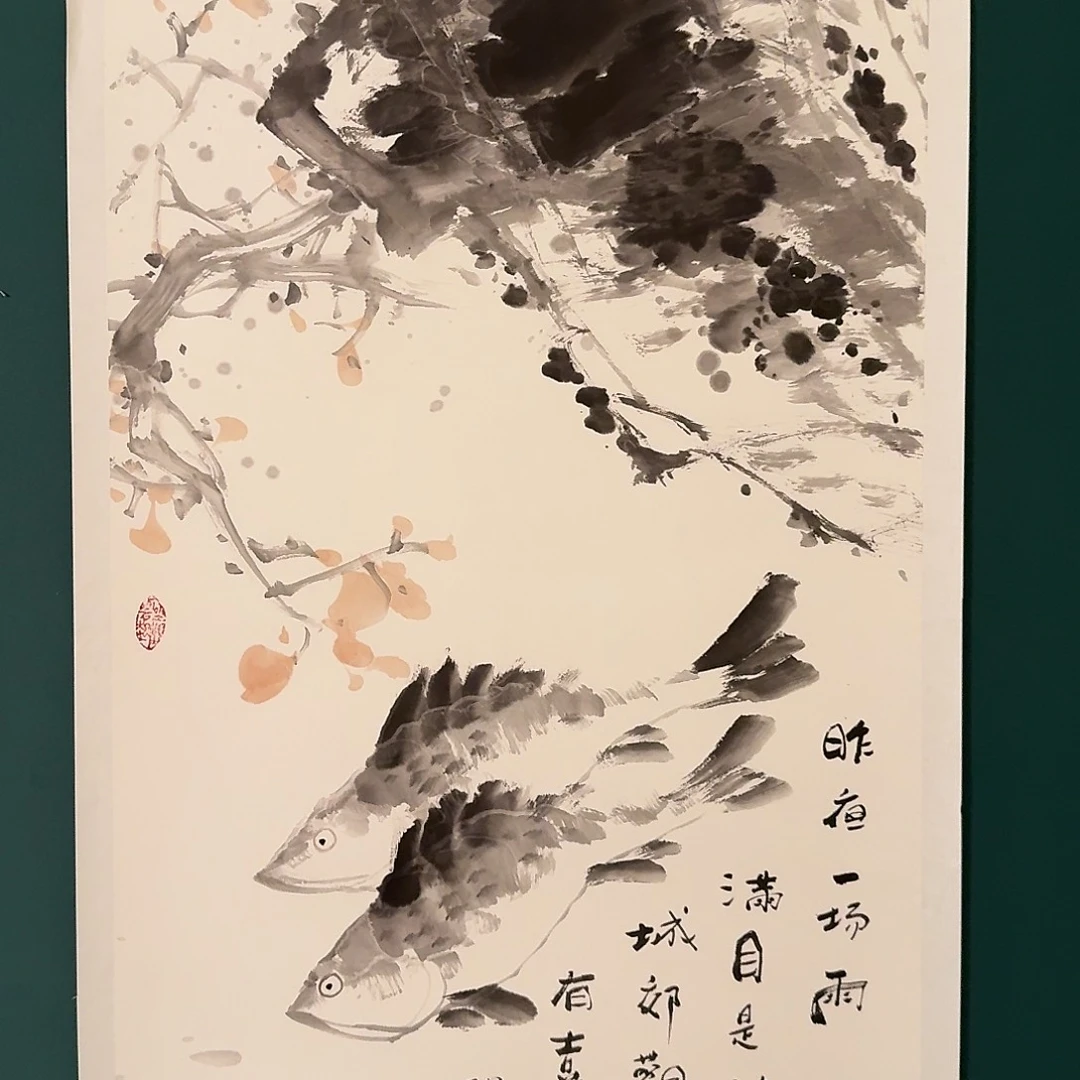 昨夜一场雨
满目是
城郊
有喜